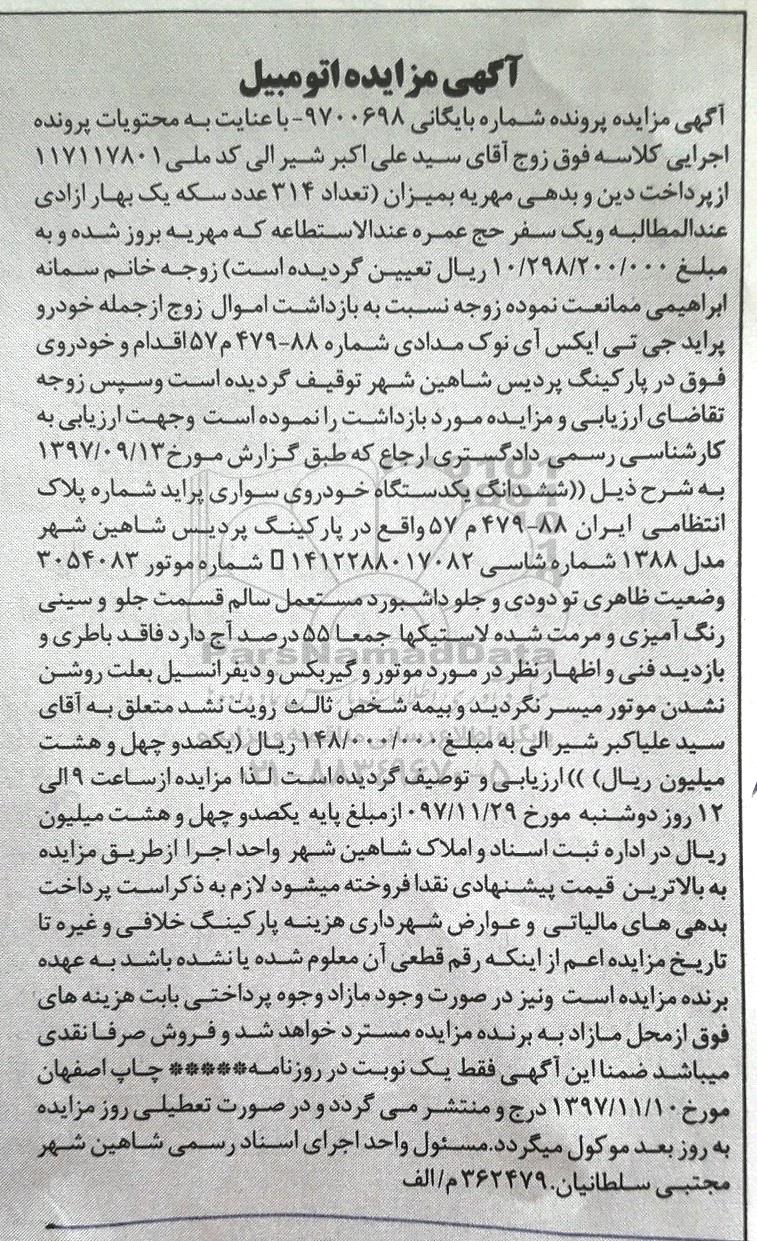 آگهی مزایده اتومبیل
آگهی مزایده پرونده شماره بایگانی ۹۷۰۰۶۹۸- با عنایت به محتویات پرونده
اجرایی کلاسه فوق زوج آقای سید علی اکبر شیر الی کد ملی ۱۱۷۱۱۷۸۰۱
از پرداخت دین و بدهی مهریه بمیزان (تعداد ۳۱۴ عدد سکه یک بهار ازادی
عندالمطالبه ویک سفر حج عمره عندالاستطاعه که مهریه بروز شده و به
مبلغ ۱۰/۲۹۸/۲۰۰/۰۰۰ ریال تعیین گردیده است) زوجه خانم سمانه
ابراهیمی ممانعت نموده زوجه نسبت به بازداشت اموال زوج ازجمله خودرو
پراید جی تی ایکس آی نوک مدادی شماره ۸۸-۴۷۹ م۵۷ اقدام و خودروی
فوق در پارکینگ پردیس شاهین شهر توقیف گردیده است وسپس زوجه
تقاضای ارزیابی و مزایده مورد بازداشت را نموده است وجهت ارزیابی به
کارشناسی رسمی دادگستری ارجاع که طبق گزارش مورخ ۱۳۹۷/۰۹/۱۳
به شرح ذیل ((ششدانگ یکدستگاه خودروی سواری پراید شماره پلاک
انتظامی ایران ۸۸-۴۷۹ م ۵۷ واقع در پارکینگ پردیس شاهین شهر
مدل ۱۳۸۸ شماره شاسی ۱۴۱۲۲۸۸۰۱۷۰۸۲ شماره موتور ۳۰۵۴۰۸۳
وضعیت ظاهری تو دودی و جلو داشبورد مستعمل سالم قسمت جلو و سینی
رنگ آمیزی و مرمت شده لاستیکها جمعا ۵۵ درصد آج دارد فاقد باطری و
بازدید فنی و اظهار نظر در مورد موتور و گیربکس و دیفرانسیل بعلت روشن
نشدن موتور میسر نگردید و بیمه شخص ثالث رویت نشد متعلق به آقای
سید علیاکبر شیر الی به مبلغ ۱۴۸/۰۰۰/۰۰۰ ریال (یکصدو چهل و هشت
میلیون ریال) )) ارزیابی و توصیف گردیده است لذا مزایده از ساعت ۹ الی
۱۲ روز دوشنبه مورخ ۰۹۷/۱۱/۲۹ ازمبلغ پایه یکصدو چهل و هشت میلیون
ریال در اداره ثبت اسناد و املاک شاهین شهر واحد اجرا ازطریق مزایده
به بالاترین قیمت پیشنهادی نقدا فروخته میشود لازم به ذکراست پرداخت
بدهی های مالیاتی و عوارض شهرداری هزینه پارکینگ خلافی و غیره تا
تاریخ مزایده اعم از اینکه رقم قطعی آن معلوم شده یا نشده باشد به عهده
برنده مزایده است ونیز در صورت وجود مازاد وجوه پرداختی بابت هزینه های
فوق ازمحل مازاد به برنده مزایده مسترد خواهد شد و فروش صرفا نقدی
میباشد ضمنا این آگهی فقط یک نوبت در روزنامه***** چاپ اصفهان
مورخ ۱۳۹۷/۱۱/۱۰ درج و منتشر می گردد و در صورت تعطیلی روز مزایده
به روز بعد موکول میگردد.مسئول واحد اجرای اسناد رسمی شاهین شهر
مجتبی سلطانیان. ۳۶۲۴۷۹ م/الف
ParsNamadData